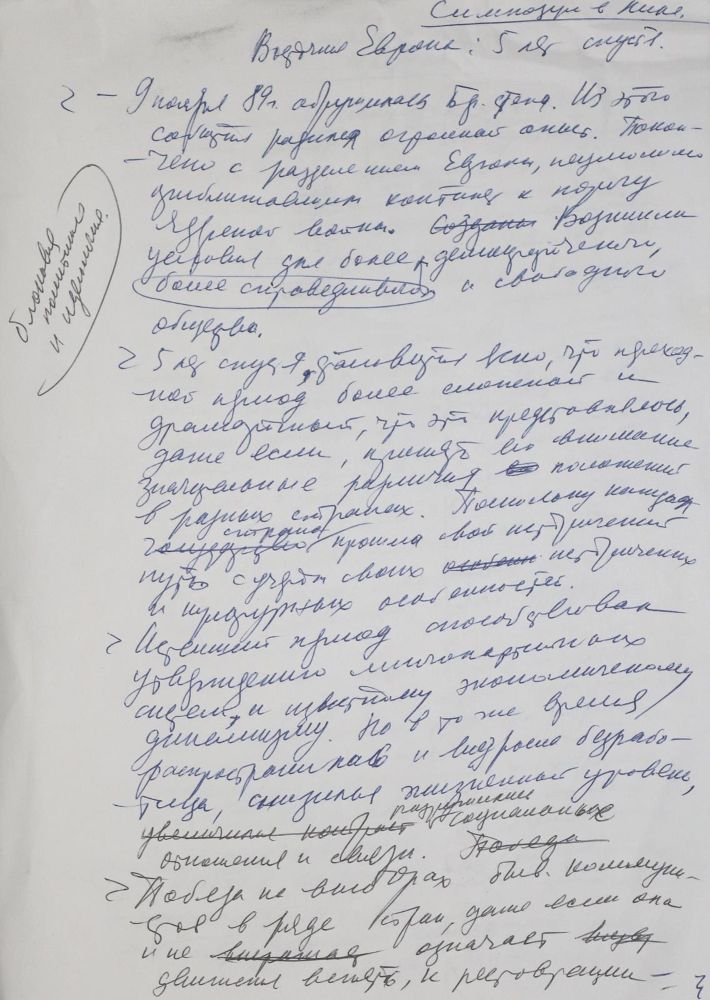 Симпозиум в
Восточная Европа: 5 лет спустя.
– 9 ноября 89г. обрушилась Бр. стена. Из этого
события родился огромный опыт. Покон-
– чено с разделением Европы, неумолимо
приближавшим континент к порогу
ядерной войны. Созданы Возникли
условия для более демократичного,
более справедливого и свободного
общества.
блоковая
политика
и идеология.
5 лет спустя становится ясно, что переход-
ной период более сложный и
драматичный, что это представлялось,
даже если принять во внимание
значительные различия положений
в разных странах. Поскольку каждая
страна
государство прошла свой исторический
путь с учетом своих особенн исторических
и культурных особенностей.
Истекший период способствовал
утверждению многопартийных
систем, и известному экономическому
динамизму. Но в то же время
распространилась и выросла безрабо-
– тица, снизился жизненный уровень,
разрушились
увеличился контраст социальные
отношения и связи. Победа
Победа на выборах быв. коммуни-
стов в ряде стран, даже если она
и не означает
движения вспять, к реставрации –